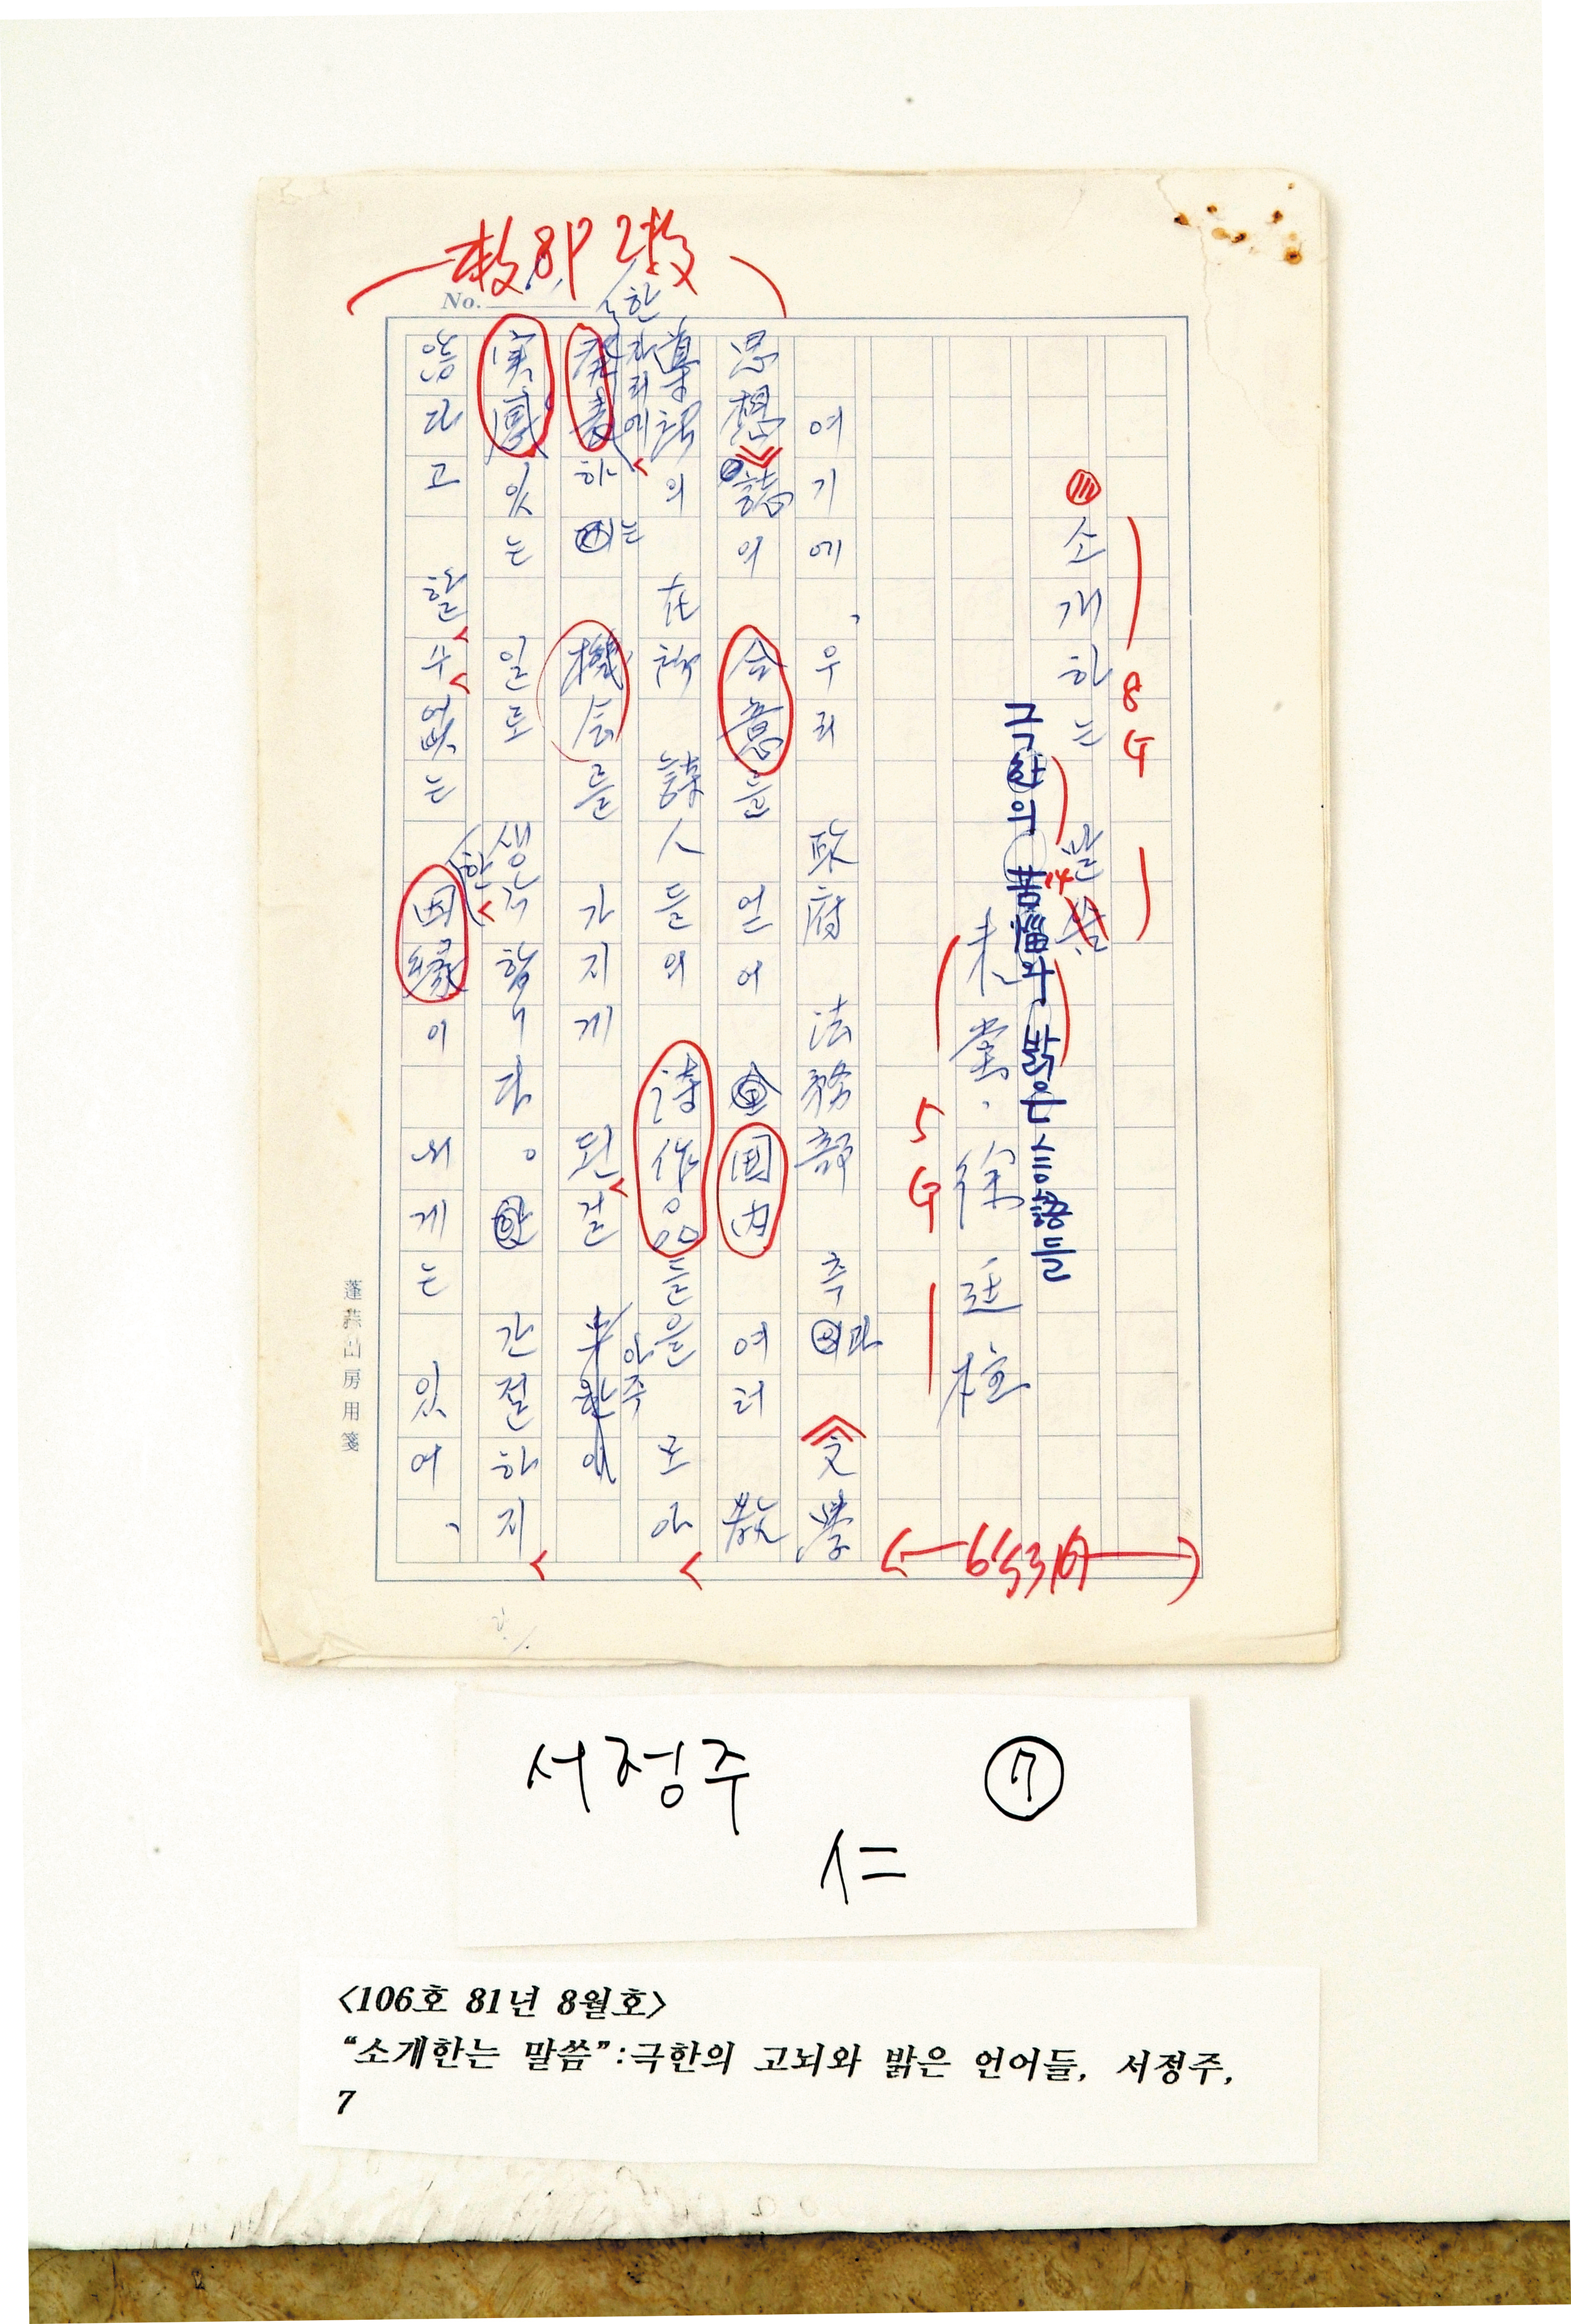 8P
No.
8
G
소개하는 말씀
극한의 苦惱와 밝은 言語들
未堂· 徐廷柱
5
G
여기에, 우리 政府 法務部 측과 《文學
思想》誌의 合意를 얻어 国内 여러 敎
導所의 人들의 詩作品들을 모아
한자리에 發表하는 機会를 가지게 된 걸 아주
実感있는 일로 생각합니다. 간절하지
않다고 할 수 없는 한 因緣이 내게는 있어,
山房用箋
서정주 ⑦
시=
<106호 81년 8월호>
“소개한는 말씀”:극한의 고뇌와 밝은 언어들, 서정주,
7